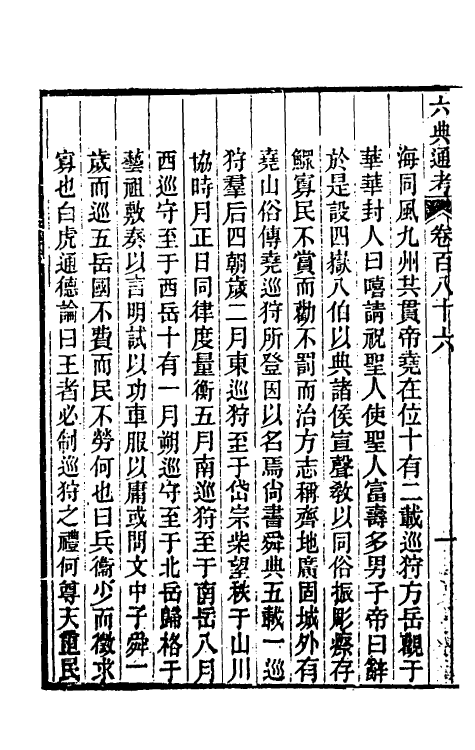 六典通考 卷百八十六 一
海同風九州共貫帝堯在位十有二載巡狩方岳觀于
華華封人曰嘻請祝聖人使聖人富壽多男子帝曰辭
於是設四嶽八伯以典諸侯宣聲敎以同俗振彫瘵存
鰥寡民不賞而勸不罰而治方志稱齊地廣固城外有
堯山俗傳堯巡狩所登因以名焉尙書舜典五載一巡
狩羣后四朝歲二月東巡狩至于岱宗柴望秩于山川
協時月正日同律度量衡五月南巡狩至于南岳八月
西巡守至于西岳十有一月朔巡守至于北岳歸格于
藝祖敷奏以言明試以功車服以庸或問文中子舜一
歲而巡五岳國不費而民不勞何也曰兵衞少而徵求
寡也白虎通德論曰王者必制巡狩之禮何尊天重民